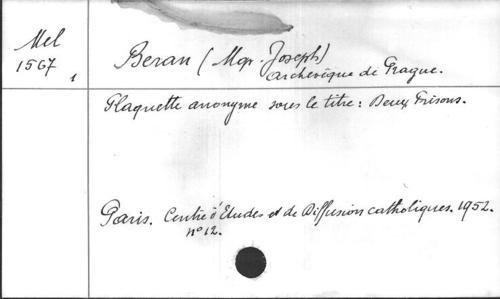 Mel
1567
1
Beran (Mgr. Joseph)
archevêque de Prague.
Plaquette anonyme sous le titre: Deux Prisons.
Paris. Centre d'Etudes et de Diffusion catholiques. 1952.
n° 12.